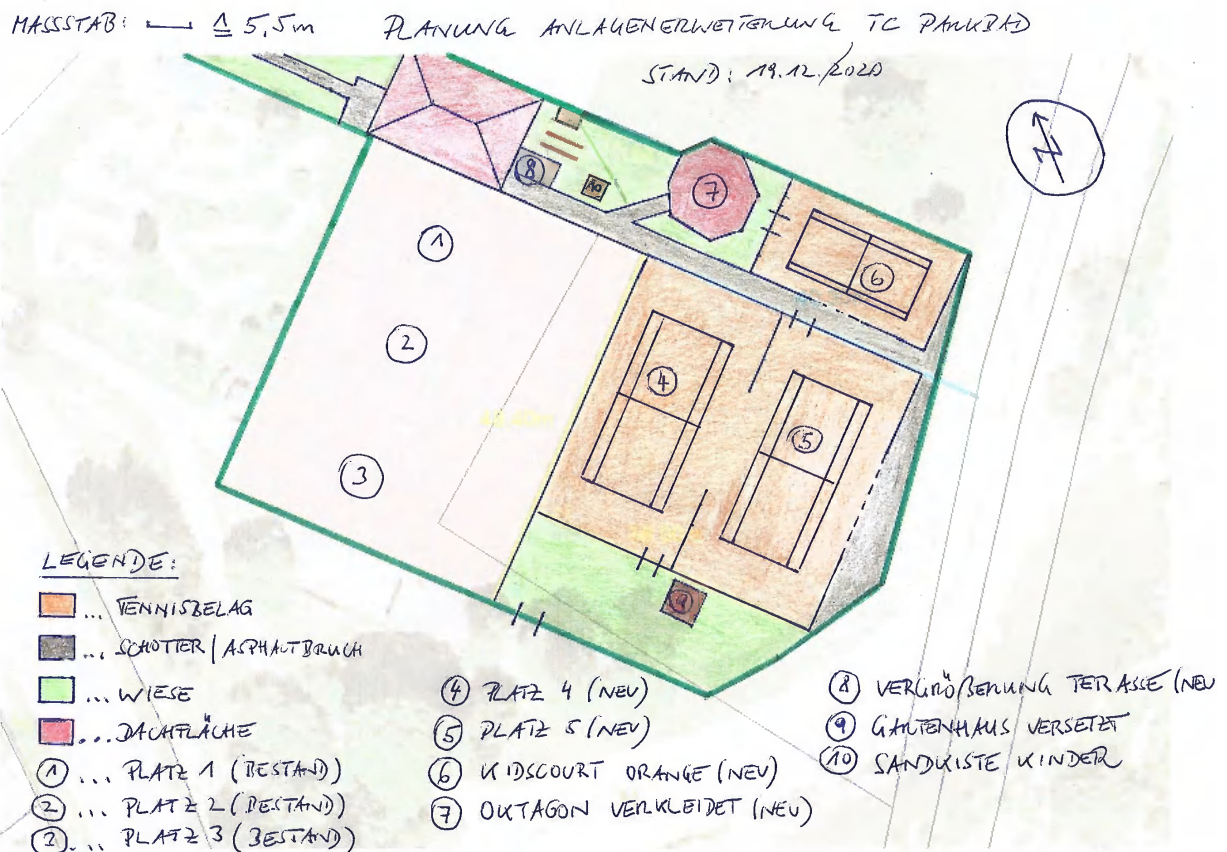 MASSSTAB: ≙ 5,5m PLANUNG ANLAGENERWEITERUNG TC PARKBAD
STAND: 19.12.2020
N
8
10
7
6
1
2
4
5
3
9
LEGENDE:
... TENNISBELAG
... SCHOTTER/ASPHALTBRUCH
... WIESE
... DACHFLÄCHE
1 ... PLATZ 1 (BESTAND)
2 ... PLATZ 2 (BESTAND)
3 ... PLATZ 3 (BESTAND)
4 PLATZ 4 (NEU)
5 PLATZ 5 (NEU)
6 KIDSCOURT ORANGE (NEU)
7 OKTAGON VERKLEIDET (NEU)
8 VERGRÖßERUNG TERASSE (NEU
9 GARTENHAUS VERSETZT
10 SANDKISTE KINDER